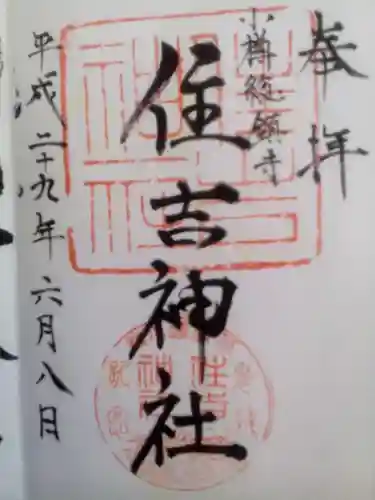 奉拝
小樽総鎮守
住吉神社
平成二十九年六月八日